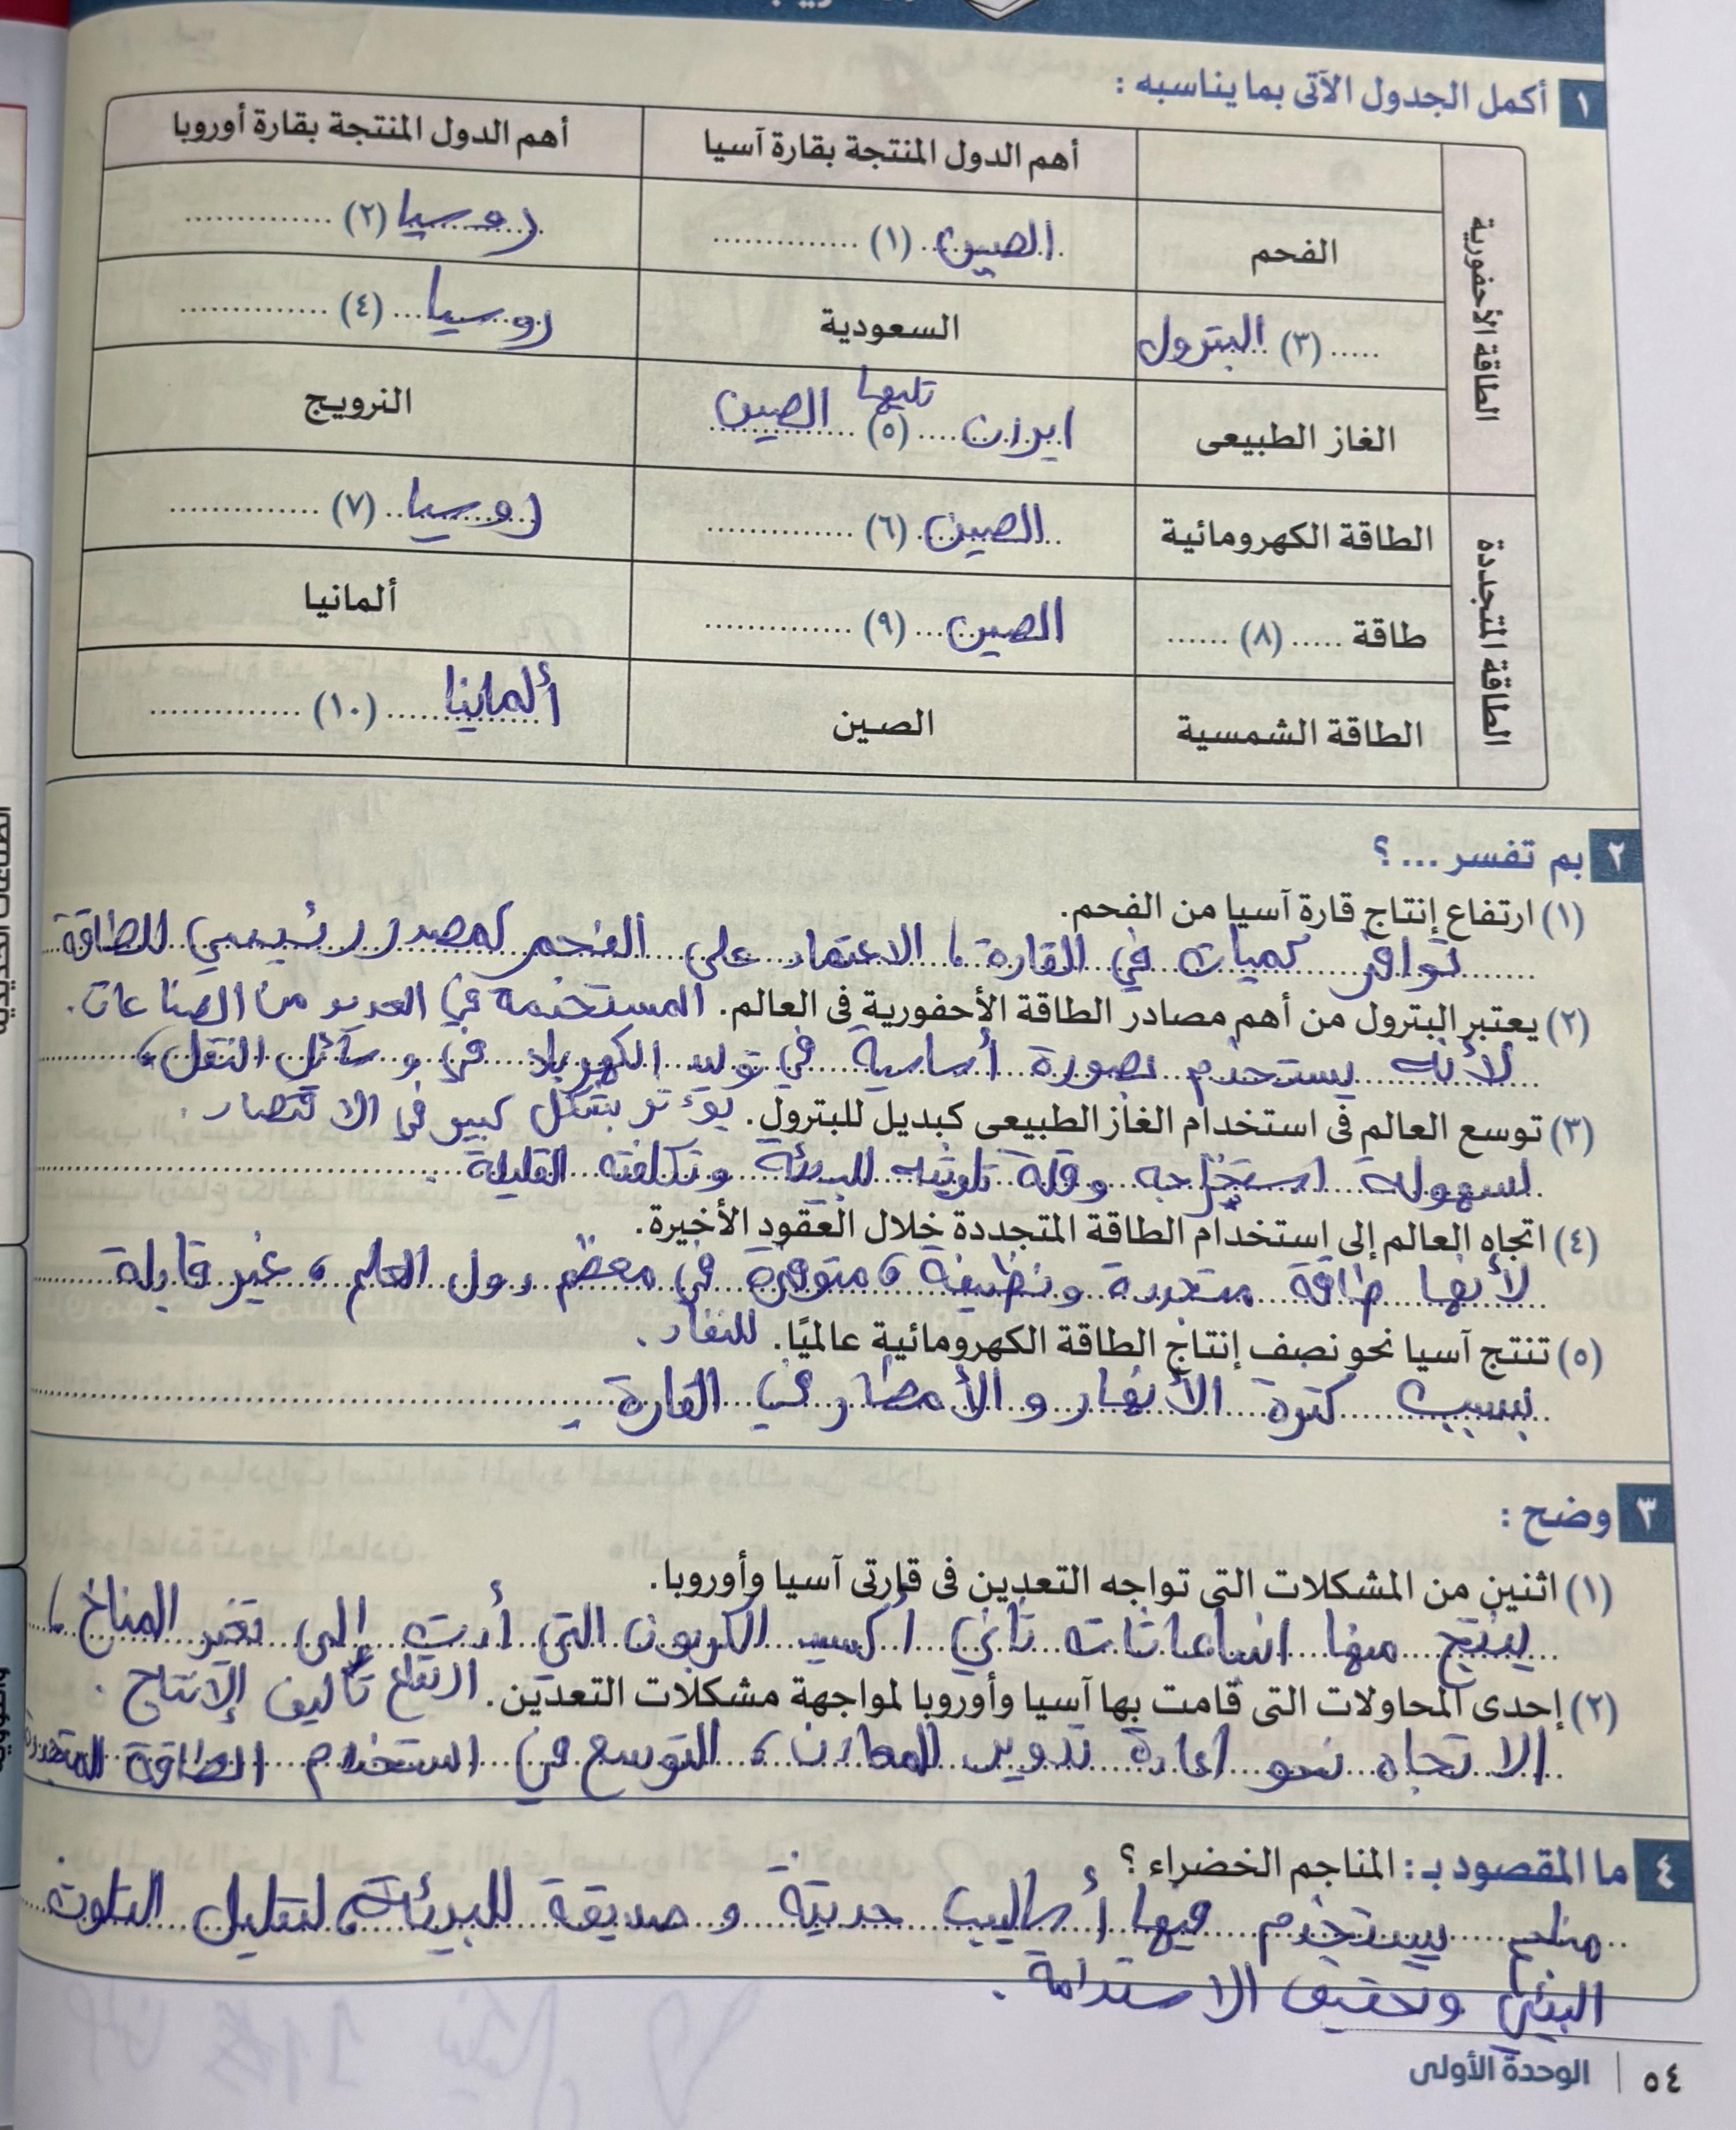 ١ أكمل الجدول الآتى بما يناسبه :
أهم الدول المنتجة بقارة آسيا أهم الدول المنتجة بقارة أوروبا
الطاقة الأحفورية
الفحم الصين (١) .............. روسيا (٢) ..............
..... (٣) البترول السعودية روسيا (٤) ..............
الغاز الطبيعى ايران (٥) تليها الصين النرويج
الطاقة المتجددة
الطاقة الكهرومائية الصين (٦) .............. روسيا (٧) ..............
طاقة ..... (٨) ...... الصين (٩) .............. ألمانيا
الطاقة الشمسية الصين ألمانيا (١٠) ..............
٢ بم تفسر ... ؟
(١) ارتفاع إنتاج قارة آسيا من الفحم.
توافر كميات في القارة ، الاعتماد على الفحم كمصدر رئيسي للطاقة
المستخدمة في العديد من الصناعات .
(٢) يعتبر البترول من أهم مصادر الطاقة الأحفورية فى العالم.
لأنه يستخدم بصورة أساسية في توليد الكهرباء في وسائل النقل ،
يؤثر بشكل كبير في الاقتصاد .
(٣) توسع العالم فى استخدام الغاز الطبيعى كبديل للبترول.
لسهولة استخراجه وقلة تلويثه للبيئة وتكلفته القليلة .
(٤) اتجاه العالم إلى استخدام الطاقة المتجددة خلال العقود الأخيرة.
لأنها طاقة متجددة ونظيفة ، متوفرة في معظم دول العالم ، غير قابلة
للنفاد .
(٥) تنتج آسيا نحو نصف إنتاج الطاقة الكهرومائية عالميًا.
بسبب كثرة الأنهار و الأمطار في القارة .
٣ وضح :
(١) اثنين من المشكلات التى تواجه التعدين فى قارتى آسيا وأوروبا.
ينتج منها انبعاثات ثاني أكسيد الكربون التي أدت إلى تغير المناخ ،
ارتفاع تكاليف الإنتاج .
(٢) إحدى المحاولات التى قامت بها آسيا وأوروبا لمواجهة مشكلات التعدين.
الاتجاه نحو اعادة تدوير المعادن ، التوسع في استخدام الطاقة المتجددة
٤ ما المقصود بـ : المناجم الخضراء ؟
مناجم يستخدم فيها أساليب حديثة و صديقة للبيئة ، لتقليل التلوث
البيئي وتحقيق الاستدامة .
٥٤ | الوحدة الأولى